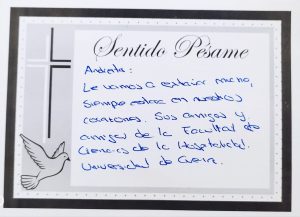 Sentido Pésame
Andreita:
Le vamos a extrañar mucho,
siempre estará en nuestros
corazones. Sus amigos y
amigas de la Facultad de
Ciencias de la Hospitalidad.
Universidad de Cuenca.